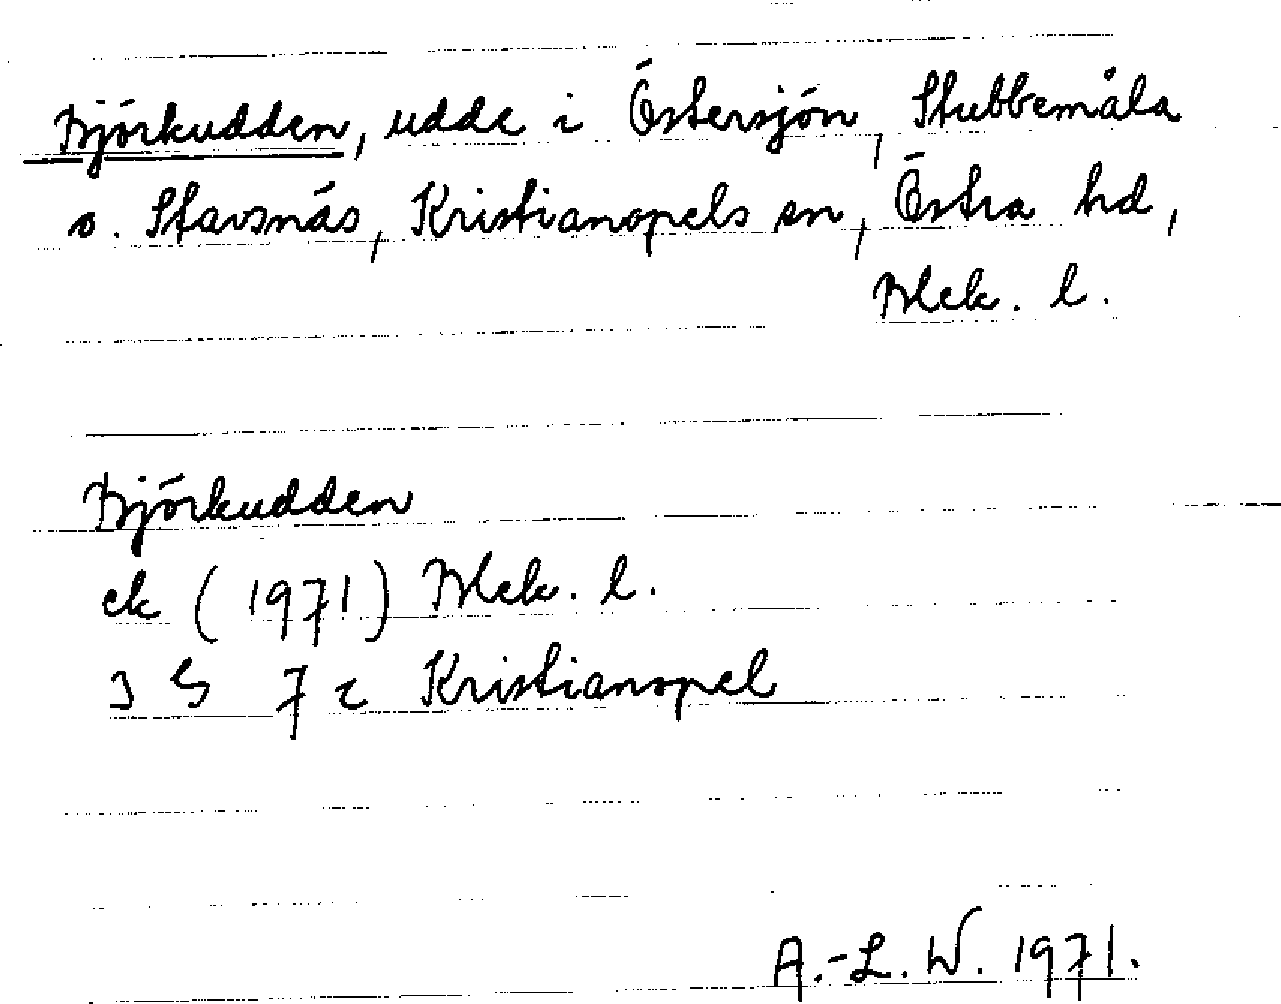 Björkudden, udde i Östersjön, Stubbemåla
o. Stavsnäs, Kristianopels sn, Östra hd,
Blek. l.
Björkudden
ek (1971) Blek. l.
3 G 7 c Kristianopel
A.-L. W. 1971.